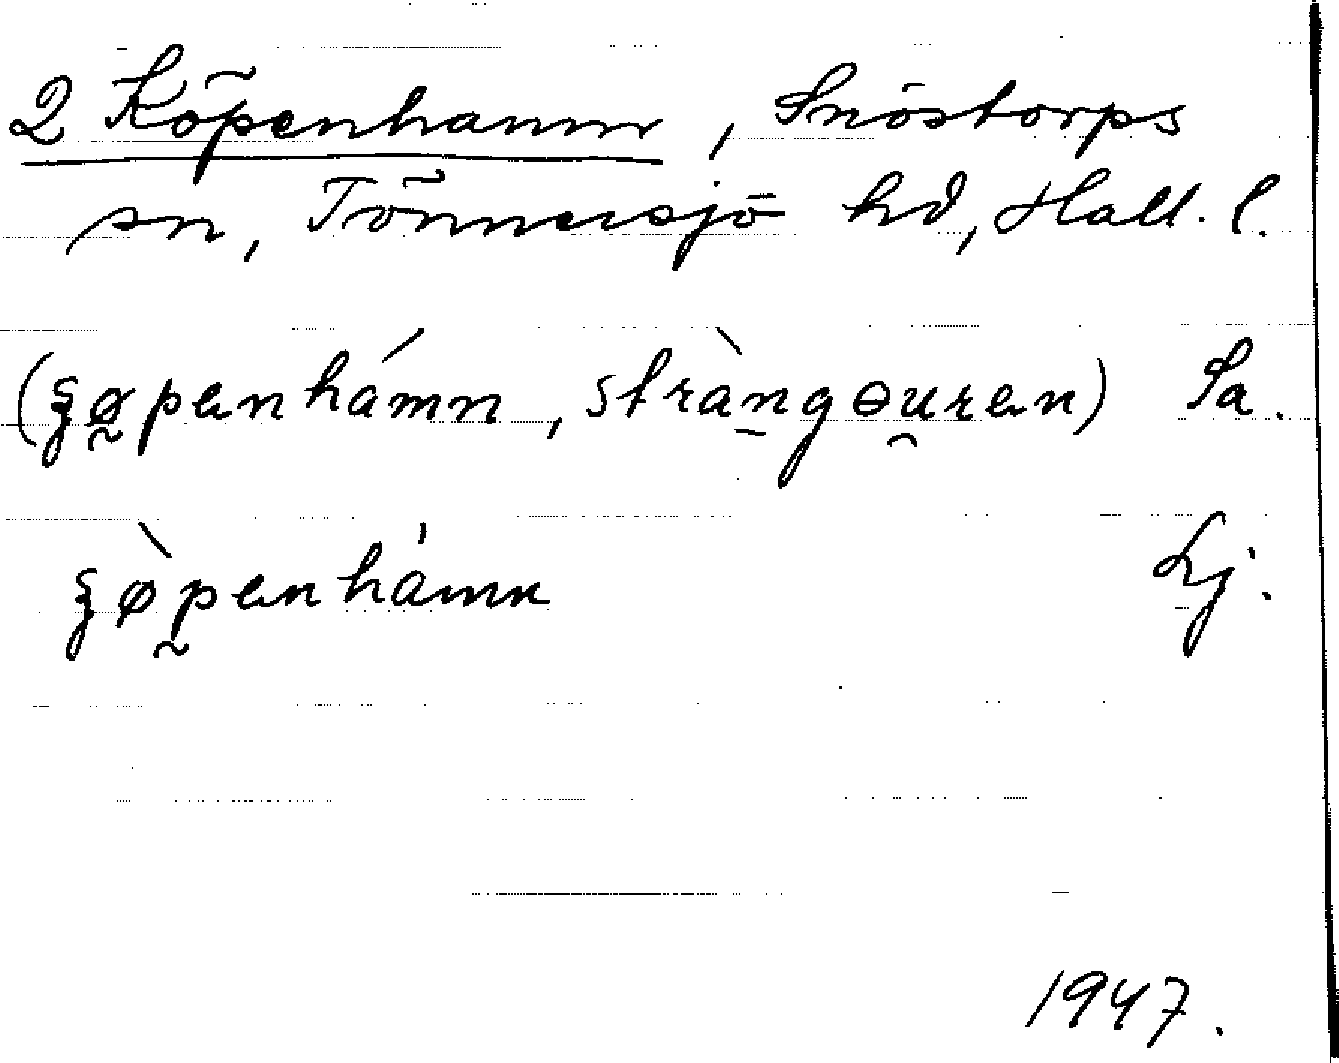 2 Köpenhamn, Snöstorps
sn, Tönnersjö hd, Hall. l.
(ʒø̰penhámn, stràngɵuren) Sa.
ʒø̀penhámn Lj.
1947.